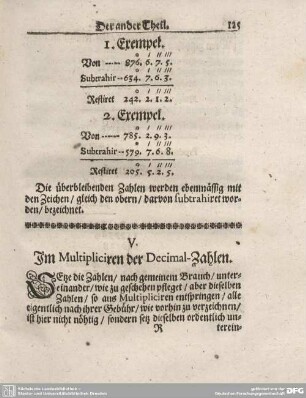 Der ander Theil. 125
1. Exempel.
0 / // ///
Von ---- 876. 6. 7. 5.
0 / // ///
Subtrahir -- 634. 7. 6. 3.
0 / // ///
Restiret 242. 2. 1. 2.
2. Exempel.
0 / // ///
Von ---- 785. 2. 9. 3.
0 / // ///
Subtrahir -- 579. 7. 6. 8.
0 / // ///
Restiret 205. 5. 2. 5.
Die überbleibenden Zahlen werden ebenmässig mit
den Zeichen / gleich den obern / darvon subtrahiret wor-
den / bezeichnet.
V.
Im Multipliciren der Decimal-Zahlen.
SEtze die Zahlen / nach gemeinem Brauch / unter-
einander / wie zu geschehen pfleget / aber dieselben
Zahlen / so aus Multipliciren entspringen / alle
eigentlich nach ihrer Gebühr / wie vorhin zu verzeichnen /
ist hier nicht nöhtig / sondern setz dieselben ordentlich un-
R terein-